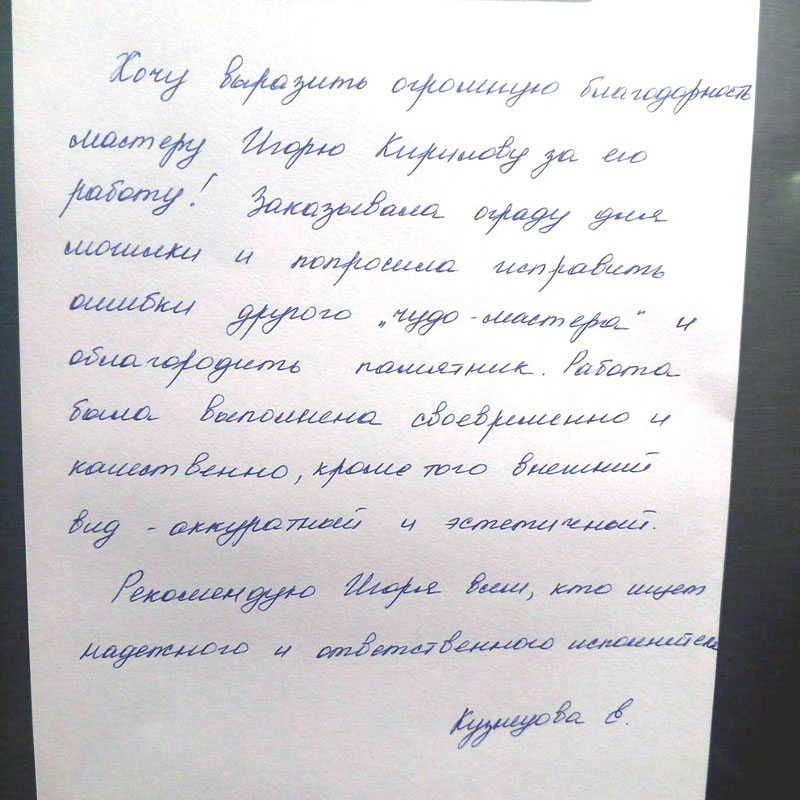 Хочу выразить огромную благодарность
мастеру Игорю Кирилову за его
работу! Заказывала ограду для
могилки и попросила исправить
ошибки другого „чудо-мастера" и
облагородить памятник. Работа
была выполнена своевременно и
качественно, кроме того внешний
вид - аккуратный и эстетичный.
Рекомендую Игоря всем, кто ищет
надежного и ответственного исполнителя
Кузнецова В.